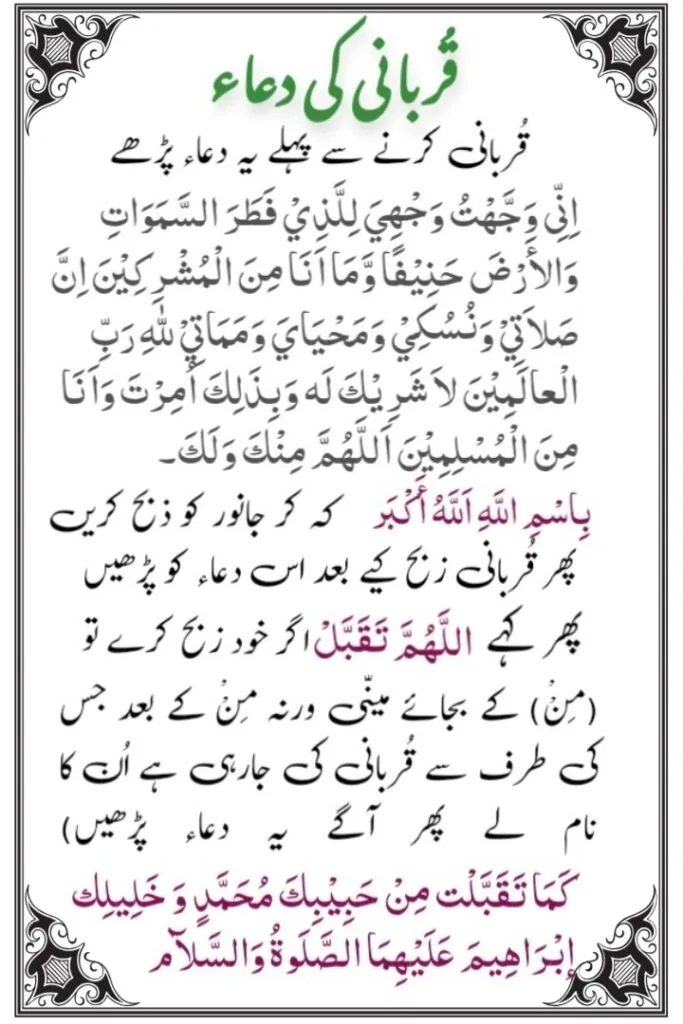 قُربانی کی دعاء
قُربانی کرنے سے پہلے یہ دعاء پڑھے
اِنِّیْ وَجَّهْتُ وَجْهِيَ لِلَّذِيْ فَطَرَ السَّمَوَاتِ
وَالأَرْضَ حَنِيْفًا وَّمَا اَنَا مِنَ الْمُشْرِكِيْنَ اِنَّ
صَلاَتِيْ وَنُسُكِيْ وَمَحْيَايَ وَمَمَاتِيْ لِلّٰهِ رَبِّ
الْعالَمِيْنَ لاَ شَرِيْكَ لَه وَبِذَلِكَ اُمِرْتَ وَاَنَا
مِنَ الْمُسْلِمِيْنَ اَللَّهُمَّ مِنْكَ وَلَكَ۔
بِاسْمِ اللَّهِ اَللَّهُ أَكْبَر کہ کر جانور کو ذبح کریں
پھر قُربانی زبح کیے بعد اس دعاء کو پڑھیں
پھر کہے اللَّهُمَّ تَقَبَّلْ اگر خود زبح کرے تو
(مِنْ) کے بجائے مینّی ورنہ مِنْ کے بعد جس
کی طرف سے قُربانی کی جارہی ہے اُن کا
نام لے پھر آگے یہ دعاء پڑھیں)
كَمَا تَقَبَّلْت مِنْ حَبِيْبِكَ مُحَمَّدٍ وَ خَلِيلِك
إبْرَاهِيمَ عَلَيْهِمَا الصَّلَوةُ وَالسَّلَآم